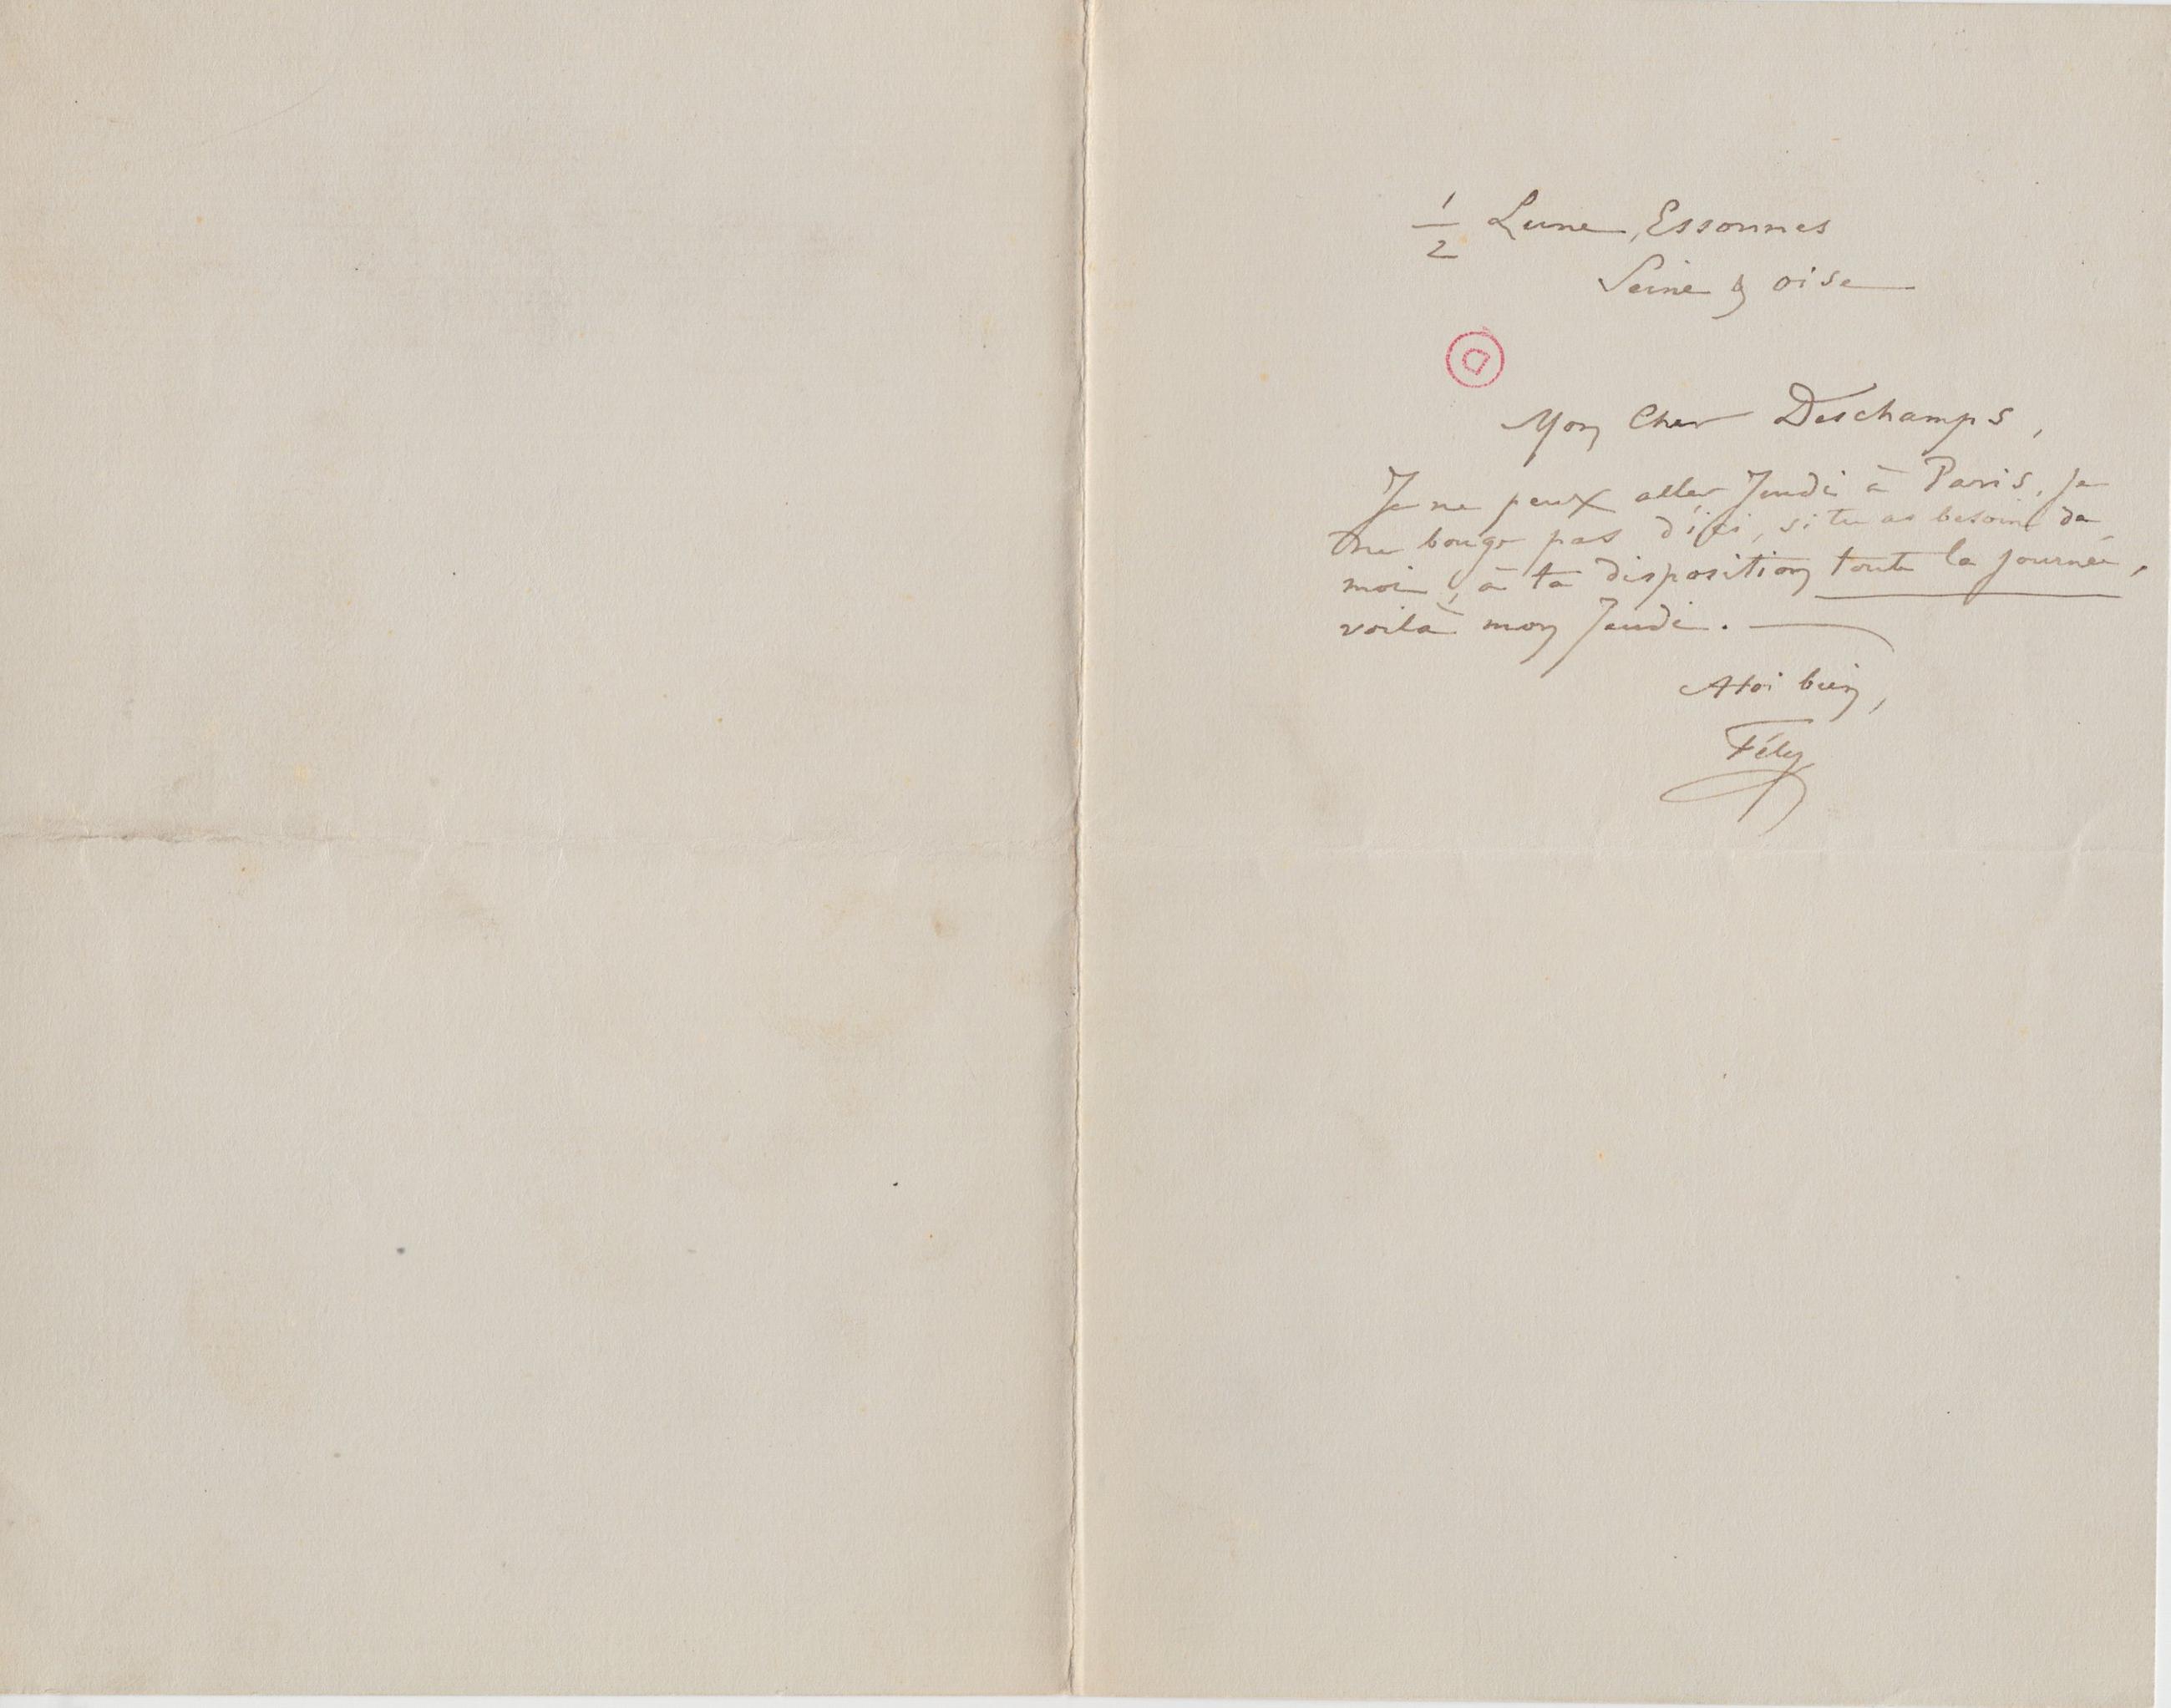 1/2 Lune, Essonnes
Seine & oise
D
Mon Cher Deschamps,
Je ne peux aller Jeudi à Paris, je
ne bouge pas d'ici, si tu as besoin de
moi, à ta disposition toute la journée,
voilà mon Jeudi.
A toi bien,
Fély